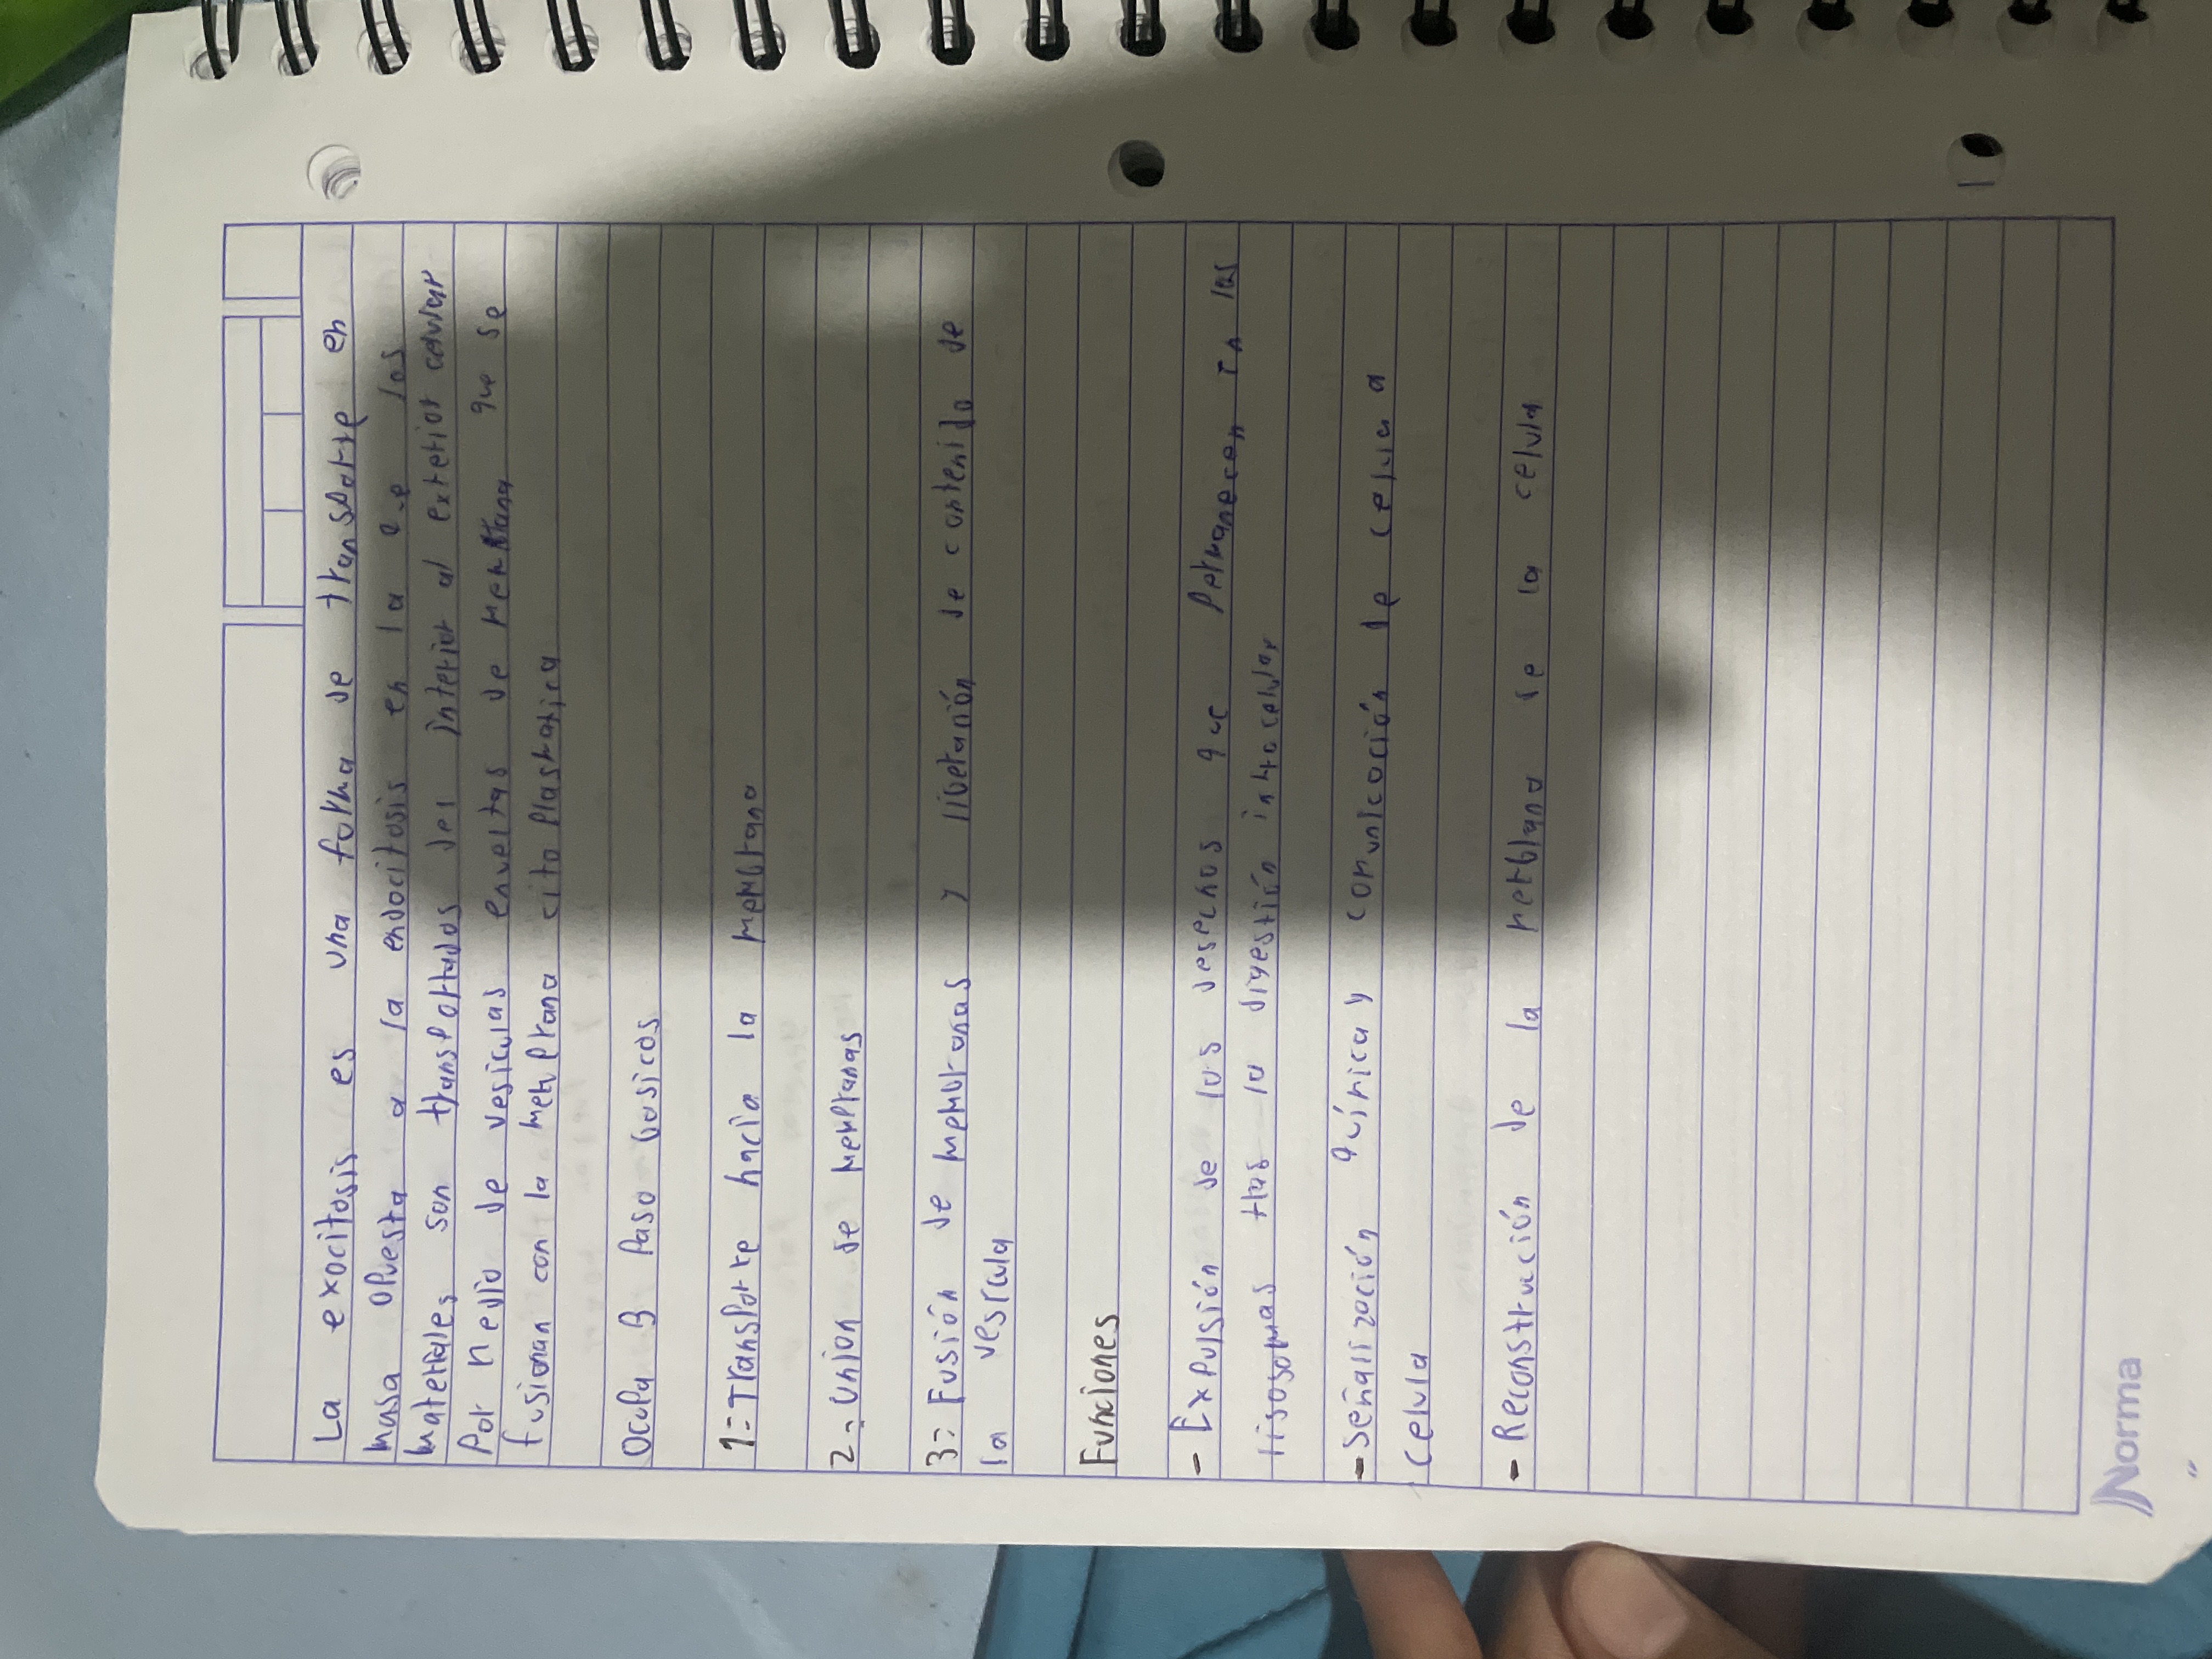 La exocitosis es una forma de transporte en
masa opuesta a la endocitosis en la que los
materiales son transportados del interior al exterior celular
Por medio de vesiculas envueltas de membrana que se
fusionan con la membrana citoplasmatica
Ocupa 3 paso basicos
1= Transporte hacia la membrana
2= Union de membranas
3= Fusión de membranas y liberación de contenido de
la vesicula
Funciones
- Expulsión de los desechos que permanecen en las
lisosomas tras la digestión intracelular
- Señalización química y comunicación de celula a
celula
- Reconstrucción de la membrana de la celula
Norma